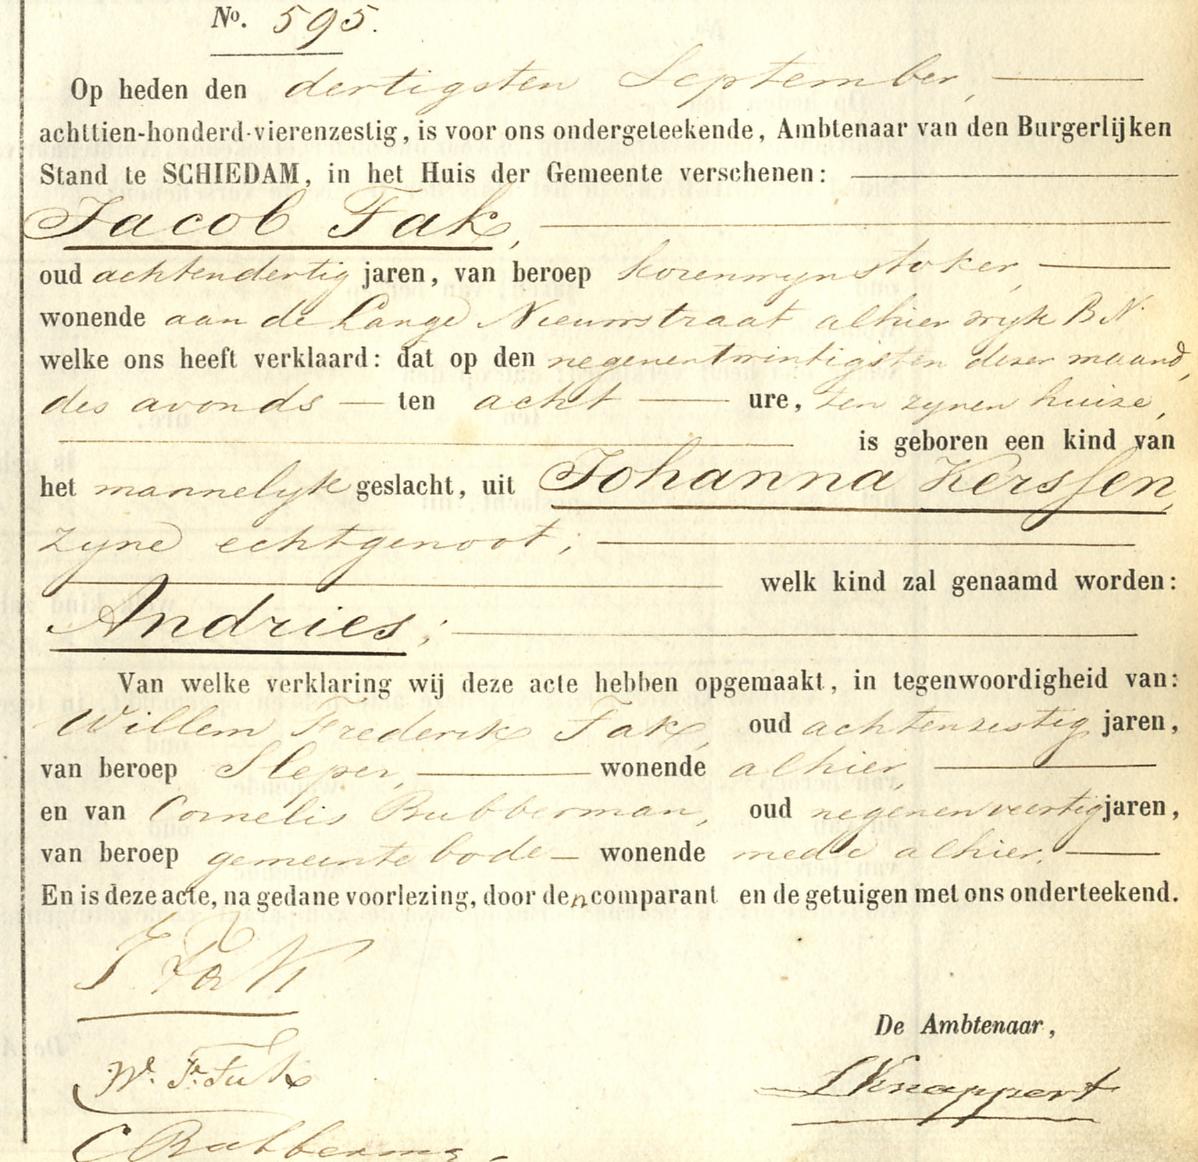 No. 595.
Op heden den dertigsten September,
achttien-honderd-vierenzestig, is voor ons ondergeteekende, Ambtenaar van den Burgerlijken
Stand te SCHIEDAM, in het Huis der Gemeente verschenen:
Jacob Fak,
oud achtendertig jaren, van beroep korenwynstoker,
wonende aan de Lange Nieuwstraat alhier wyk B No.
welke ons heeft verklaard: dat op den negenentwintigsten dezer maand,
des avonds — ten acht — ure, ten zynen huize,
is geboren een kind van
het mannelyk geslacht, uit Johanna Kerssen,
zyne echtgenoot;
welk kind zal genaamd worden:
Andries;
Van welke verklaring wij deze acte hebben opgemaakt, in tegenwoordigheid van:
Willem Frederik Fak, oud achtenzestig jaren,
van beroep Sleper, wonende alhier,
en van Cornelis Bubberman, oud negenenveertig jaren,
van beroep gemeentebode — wonende mede alhier.
En is deze acte, na gedane voorlezing, door den comparant en de getuigen met ons onderteekend.
J Fak
De Ambtenaar,
Wm. Fr. Fak
Knappert
C Bubberman